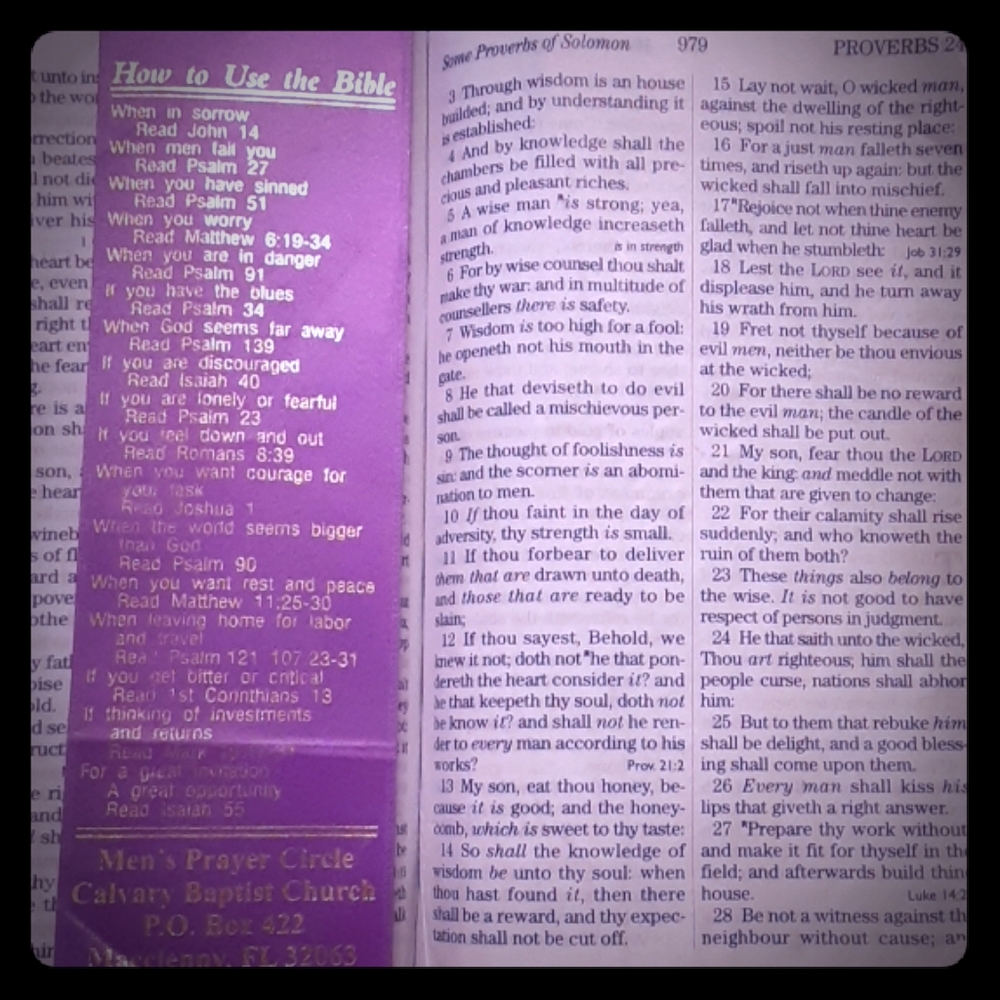 How to Use the Bible
When in sorrow
Read John 14
When men fail you
Read Psalm 27
When you have sinned
Read Psalm 51
When you worry
Read Matthew 6:19-34
When you are in danger
Read Psalm 91
If you have the blues
Read Psalm 34
When God seems far away
Read Psalm 139
If you are discouraged
Read Isaiah 40
If you are lonely or fearful
Read Psalm 23
If you feel down and out
Read Romans 8:39
When you want courage for
your task
Read Joshua 1
When the world seems bigger
than God
Read Psalm 90
When you want rest and peace
Read Matthew 11:25-30
When leaving home for labor
and travel
Read Psalm 121 107:23-31
If you get bitter or critical
Read 1st Corinthians 13
If thinking of investments
and returns
Read Mark
For a great invitation
A great opportunity
Read Isaiah 55
Men's Prayer Circle
Calvary Baptist Church
P.O. Box 422
Macclenny, FL 32063
Some Proverbs of Solomon 979 PROVERBS 24
3 Through wisdom is an house
builded; and by understanding it
is established:
4 And by knowledge shall the
chambers be filled with all pre-
cious and pleasant riches.
5 A wise man *is strong; yea,
a man of knowledge increaseth
strength. is in strength
6 For by wise counsel thou shalt
make thy war: and in multitude of
counsellers there is safety.
7 Wisdom is too high for a fool:
he openeth not his mouth in the
gate.
8 He that deviseth to do evil
shall be called a mischievous per-
son.
9 The thought of foolishness is
sin: and the scorner is an abomi-
nation to men.
10 If thou faint in the day of
adversity, thy strength is small.
11 If thou forbear to deliver
them that are drawn unto death,
and those that are ready to be
slain;
12 If thou sayest, Behold, we
knew it not; doth not *he that pon-
dereth the heart consider it? and
he that keepeth thy soul, doth not
he know it? and shall not he ren-
der to every man according to his
works? Prov. 21:2
13 My son, eat thou honey, be-
cause it is good; and the honey-
comb, which is sweet to thy taste:
14 So shall the knowledge of
wisdom be unto thy soul: when
thou hast found it, then there
shall be a reward, and thy expec-
tation shall not be cut off.
15 Lay not wait, O wicked man,
against the dwelling of the right-
eous; spoil not his resting place:
16 For a just man falleth seven
times, and riseth up again: but the
wicked shall fall into mischief.
17 *Rejoice not when thine enemy
falleth, and let not thine heart be
glad when he stumbleth: Job 31:29
18 Lest the LORD see it, and it
displease him, and he turn away
his wrath from him.
19 Fret not thyself because of
evil men, neither be thou envious
at the wicked;
20 For there shall be no reward
to the evil man; the candle of the
wicked shall be put out.
21 My son, fear thou the LORD
and the king: and meddle not with
them that are given to change:
22 For their calamity shall rise
suddenly; and who knoweth the
ruin of them both?
23 These things also belong to
the wise. It is not good to have
respect of persons in judgment.
24 He that saith unto the wicked,
Thou art righteous; him shall the
people curse, nations shall abhor
him:
25 But to them that rebuke him
shall be delight, and a good bless-
ing shall come upon them.
26 Every man shall kiss his
lips that giveth a right answer.
27 *Prepare thy work without
and make it fit for thyself in the
field; and afterwards build thin
house. Luke 14:2
28 Be not a witness against th
neighbour without cause; an